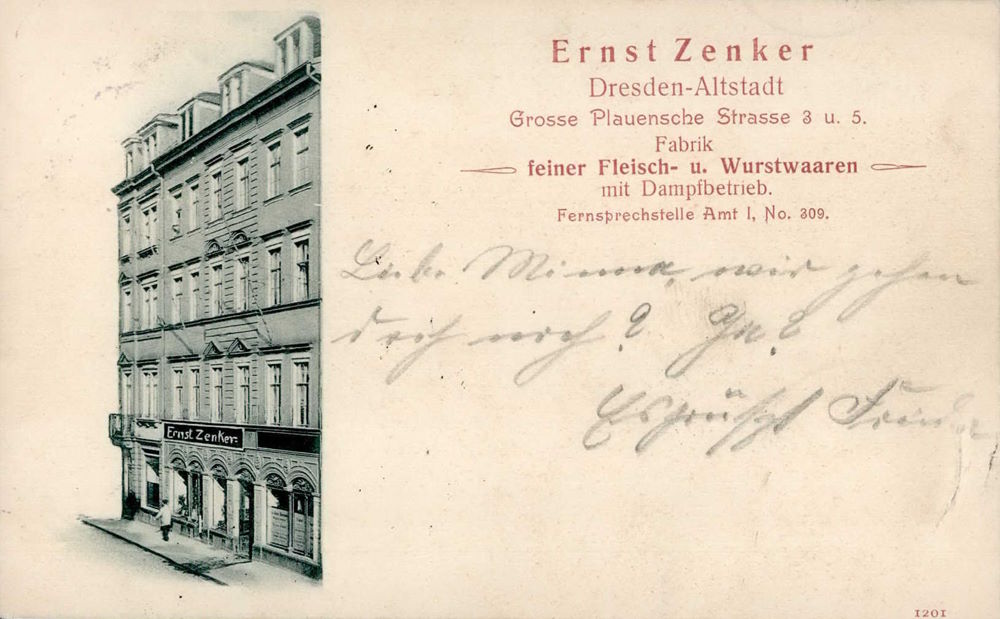 Ernst Zenker
Dresden-Altstadt
Grosse Plauensche Strasse 3 u. 5.
Fabrik
feiner Fleisch- u. Wurstwaaren
mit Dampfbetrieb.
Fernsprechstelle Amt I, No. 309.
Liebe Minna, wir gehen
doch noch? Ja?
Es grüßt
Ernst Zenker
1201